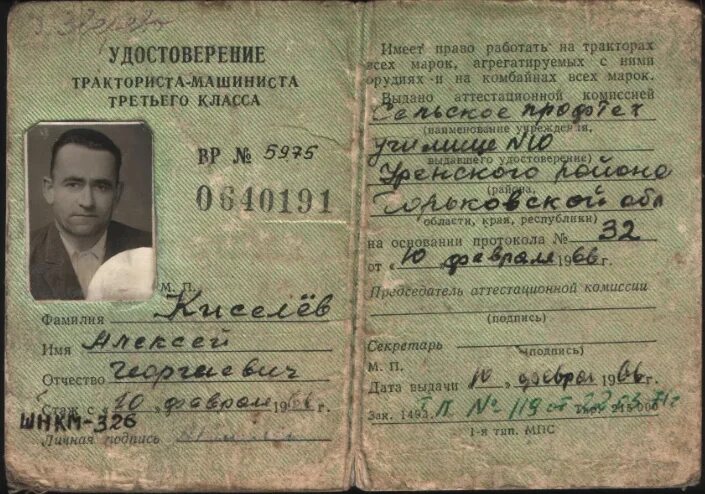 УДОСТОВЕРЕНИЕ
ТРАКТОРИСТА-МАШИНИСТА
ТРЕТЬЕГО КЛАССА
ВР № 5975
0640191
М. П.
Фамилия Киселёв
Имя Алексей
Отчество Георгиевич
Стаж с „10 февраля 1966 г.
ШНКМ-326
Личная подпись
Имеет право работать на тракторах
всех марок, агрегатируемых с ними
орудиях и на комбайнах всех марок.
Выдано аттестационной комиссией
Сельское профтех
(наименование учреждения,
училище №10
выдавшего удостоверение)
Уренского района
(района,
Горьковской обл
области, края, республики)
на основании протокола № 32
от „10 „ февраля 1966 г.
Председатель аттестационной комиссии
(подпись)
Секретарь
(подпись)
М. П.
Дата выдачи 10 „ феврал 1966 г.
Зак. 1493. Т.П. № 119 от
1-я тип. МПС